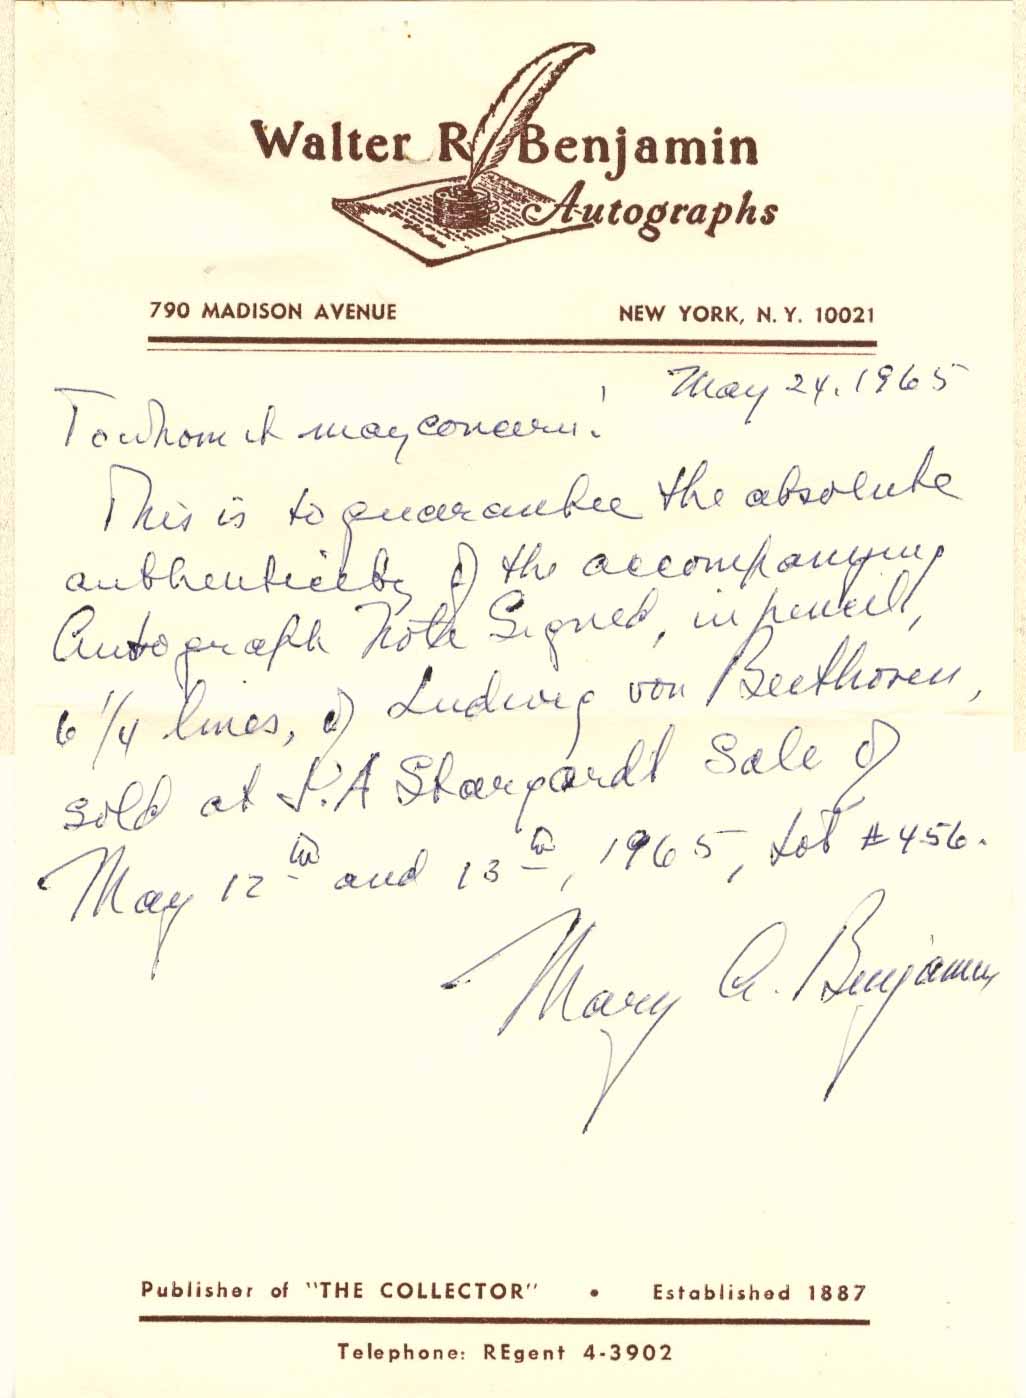 Walter R Benjamin
Autographs
790 MADISON AVENUE NEW YORK, N. Y. 10021
May 24, 1965
To whom it may concern:
This is to guarantee the absolute
authenticity of the accompanying
Autograph Note Signed, in pencil,
6 1/4 lines, of Ludwig von Beethoven,
sold at J.A Stargardt Sale of
May 12th and 13th, 1965, Lot #456.
Mary A. Benjamin
Publisher of "THE COLLECTOR" • Established 1887
Telephone: REgent 4-3902